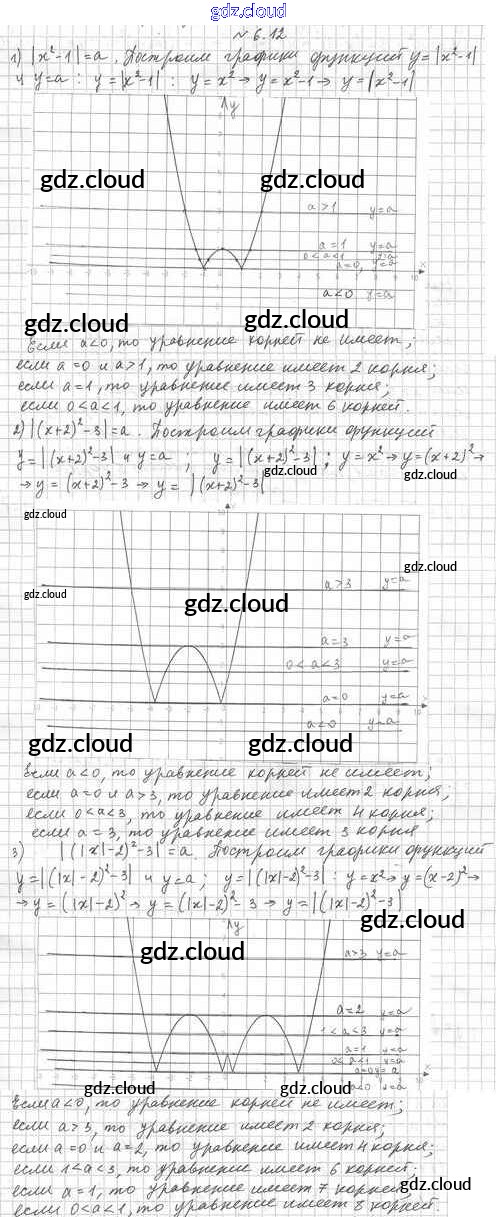 gdz.cloud
№ 6.12
1) |x²-1|=a. Построим графики функций y=|x²-1|
и y=a : y=|x²-1| : y=x² → y=x²-1 → y=|x²-1|
y
gdz.cloud gdz.cloud
a>1 y=a
a=1 y=a
0<a<1 y=a
a=0, y=a
x
a<0 y=a
gdz.cloud gdz.cloud
Если a<0, то уравнение корней не имеет;
если a=0 и a>1, то уравнение имеет 2 корня;
если a=1, то уравнение имеет 3 корня;
если 0<a<1, то уравнение имеет 6 корней.
2) |(x+2)²-3|=a. Построим графики функций
y=|(x+2)²-3| и y=a ; y=|(x+2)²-3| ; y=x² → y=(x+2)² →
gdz.cloud gdz.cloud
→ y=(x+2)²-3 → y=|(x+2)²-3|
gdz.cloud
y
gdz.cloud
a>3 y=a
gdz.cloud
gdz.cloud
a=3 y=a
0<a<3 y=a
a=0 y=a
x
a<0 y=a
gdz.cloud gdz.cloud
Если a<0, то уравнение корней не имеет;
если a=0 и a>3, то уравнение имеет 2 корня;
если 0<a<3, то уравнение имеет 4 корня;
если a=3, то уравнение имеет 3 корня
3) |(|x|-2)²-3|=a. Построим графики функций
y=|(|x|-2)²-3| и y=a; y=|(|x|-2)²-3| : y=x² → y=(x-2)² →
→ y=(|x|-2)² → y=(|x|-2)²-3 → y=|(|x|-2)²-3|
gdz.cloud
y
gdz.cloud
a>3 y=a
a=2 y=a
1<a<3 y=a
a=1 y=a
0<a<1 y=a
a=0 y=a
x
a<0 y=a
gdz.cloud gdz.cloud
Если a<0, то уравнение корней не имеет;
если a>3, то уравнение имеет 2 корня;
если a=0 и a=2, то уравнение имеет 4 корня;
если 1<a<3, то уравнение имеет 6 корней;
gdz.cloud gdz.cloud
если a=1, то уравнение имеет 7 корней;
если 0<a<1, то уравнение имеет 8 корней.